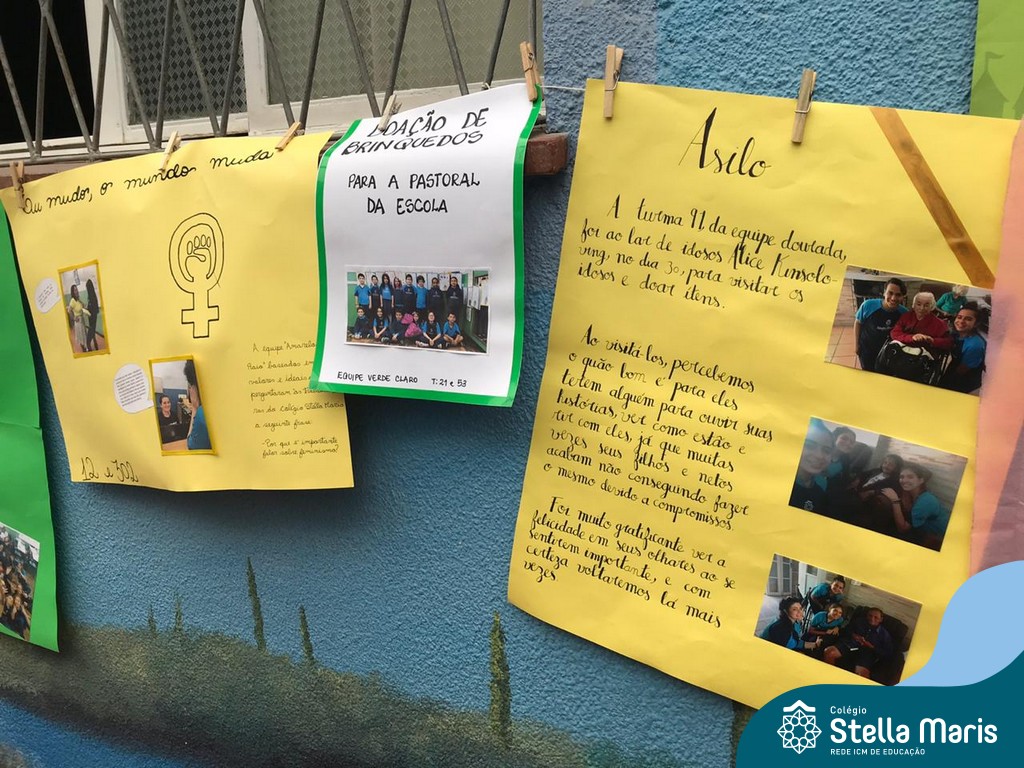 Eu mudo, o mundo muda
12 e 302
A equipe Amarelo
valores e ideais
do Colégio Stella Maris
a seguinte frase:
-Por que é importante
falar sobre feminismo?
DOAÇÃO DE
BRINQUEDOS
PARA A PASTORAL
DA ESCOLA
EQUIPE VERDE CLARO T:21 e 53
Asilo
A turma 91 da equipe dourada,
foi ao lar de idosos Alice Kinsolo-
ving, no dia 30, para visitar os
idosos e doar itens.
Ao visitá-los, percebemos
o quão bom é para eles
terem alguém para ouvir suas
histórias, ver como estão e
rir com eles, já que muitas
vezes seus filhos e netos
acabam não conseguindo fazer
o mesmo devido a compromissos.
Foi muito gratificante ver a
felicidade em seus olhares ao se
sentirem importante, e com
certeza voltaremos lá mais
vezes.
Colégio
Stella Maris
REDE ICM DE EDUCAÇÃO